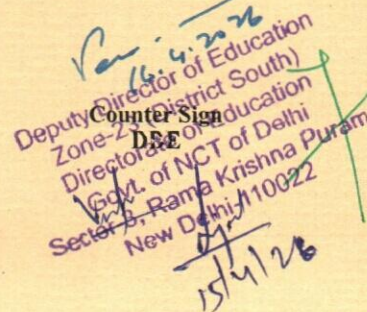 14.4.2026
Deputy Director of Education
Counter Sign
Zone-23 (District South)
DDE
Directorate of Education
Govt. of NCT of Delhi
Sector 8, Rama Krishna Puram
New Delhi-110022
15/4/26